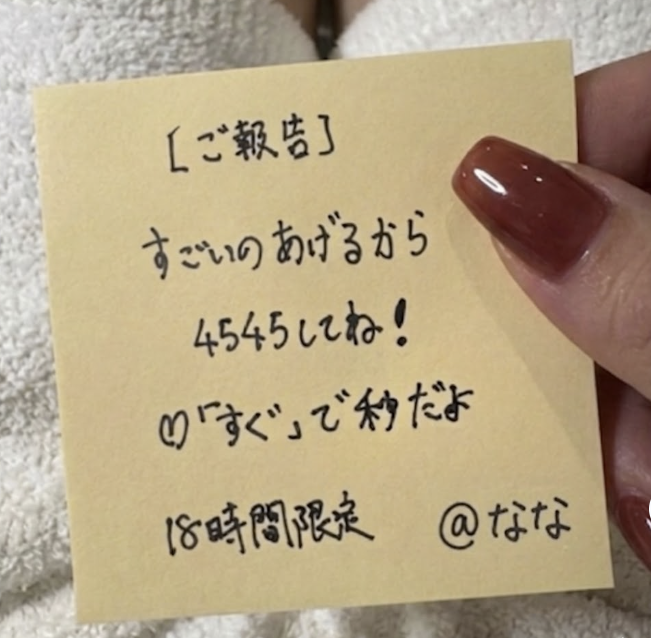 [ご報告]
すごいのあげるから
4545してね!
♡「すぐ」で秒だよ
18時間限定 @なな